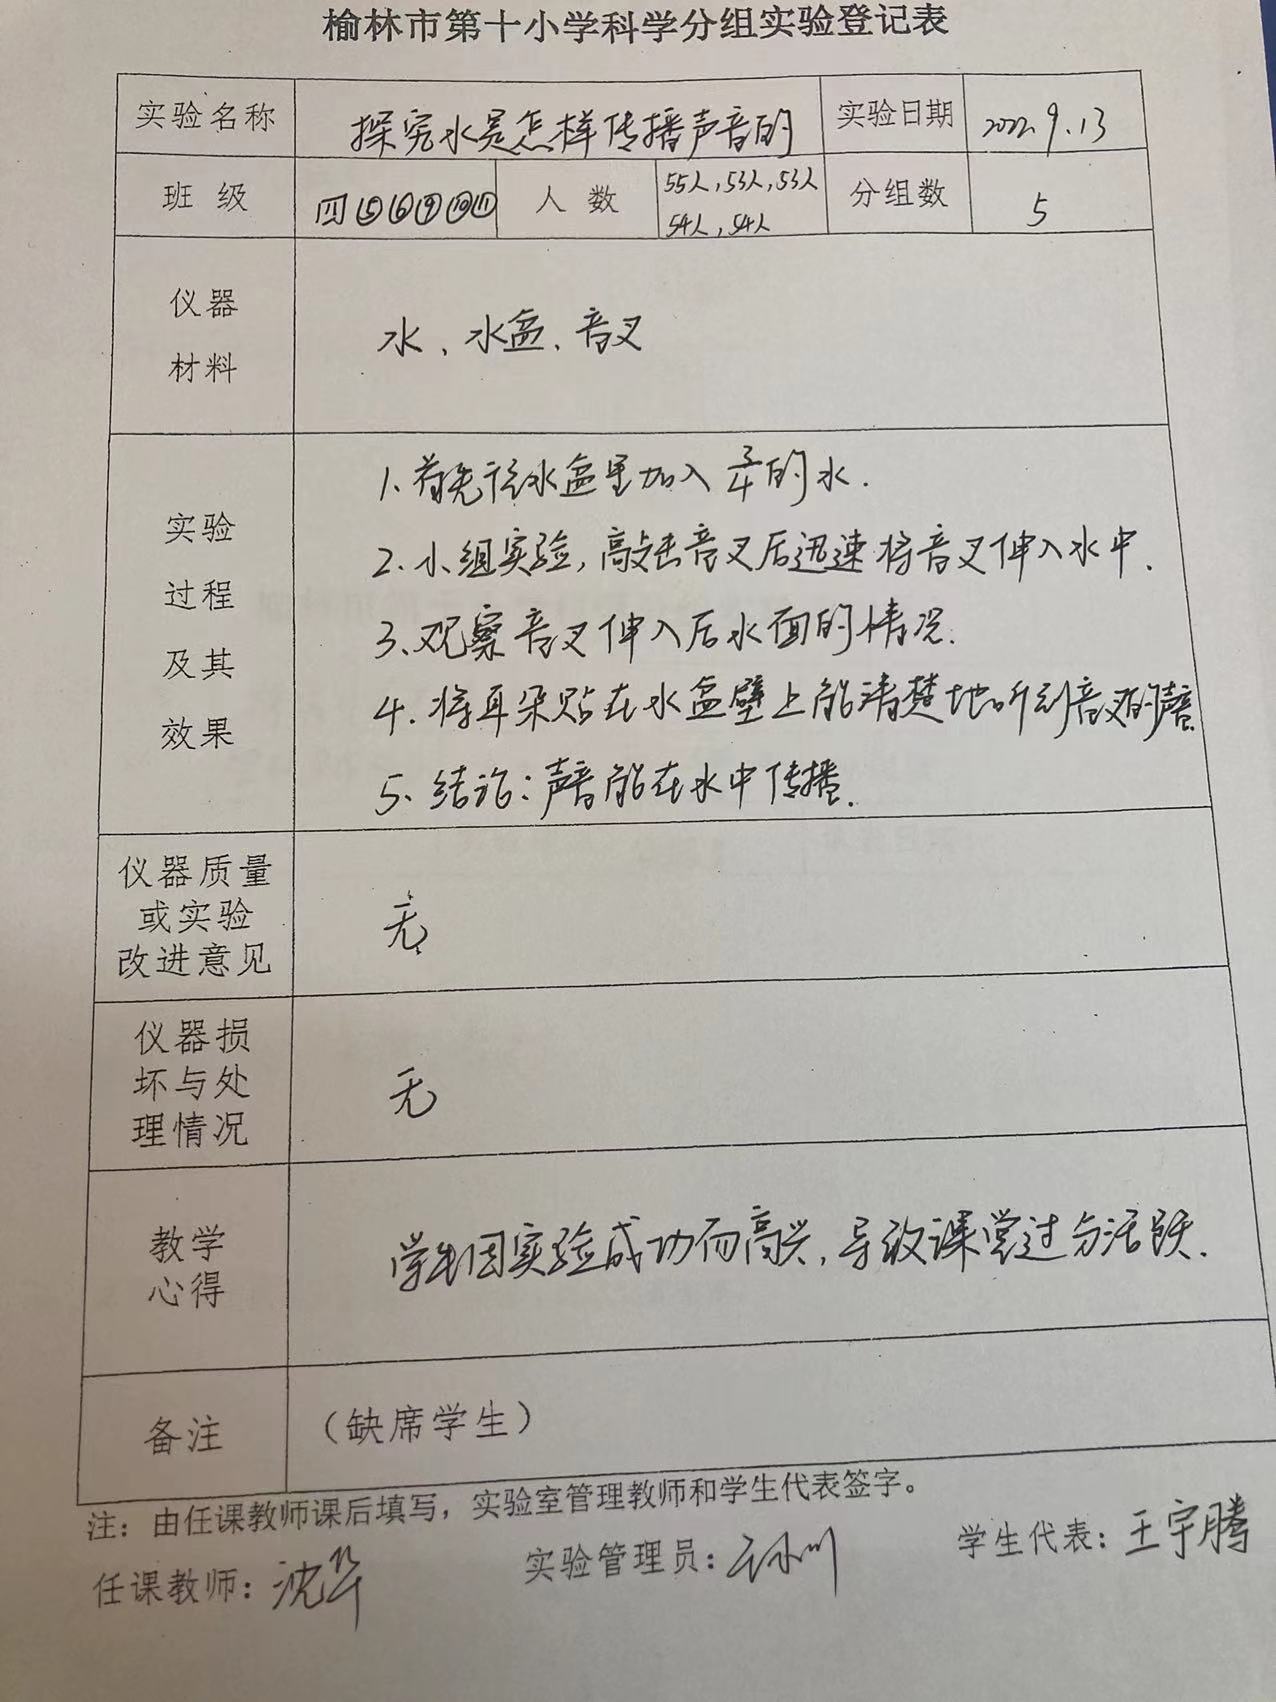 榆林市第十小学科学分组实验登记表
实验名称 探究水是怎样传播声音的 实验日期 2022.9.13
班 级 四⑤⑥⑨⑩⑪ 人 数 55人,53人,53人 分组数 5
54人,54人
仪器
材料
水、水盆、音叉
实验
过程
及其
效果
1.首先往水盆里加入3/4的水.
2.小组实验,敲击音叉后迅速将音叉伸入水中.
3.观察音叉伸入后水面的情况.
4.将耳朵贴在水盆壁上能清楚地听到音叉的声音
5.结论:声音能在水中传播.
仪器质量
或实验
改进意见
无
仪器损
坏与处
理情况
无
教学
心得
学生因实验成功而高兴,导致课堂过分活跃.
备注 (缺席学生)
注:由任课教师课后填写,实验室管理教师和学生代表签字。
任课教师:沈华 实验管理员: 学生代表:王宇腾